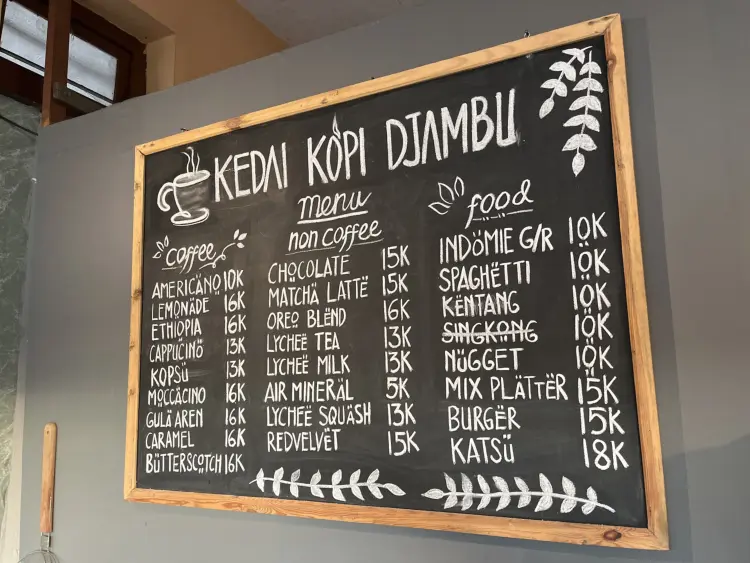 KEDAI KOPI DJAMBU
menu
coffee
AMERICANO 10K
LEMONADE 16K
ETHIOPIA 16K
CAPPUCINO 13K
KOPSU 13K
MOCCACINO 16K
GULA AREN 16K
CARAMEL 16K
BUTTERSCOTCH 16K
non coffee
CHOCOLATE 15K
MATCHA LATTE 15K
OREO BLEND 16K
LYCHEE TEA 13K
LYCHEE MILK 13K
AIR MINERAL 5K
LYCHEE SQUASH 13K
REDVELVET 15K
food
INDOMIE G/R 10K
SPAGHETTI 10K
KENTANG 10K
SINGKONG 10K
NUGGET 10K
MIX PLATTER 15K
BURGER 15K
KATSU 18K